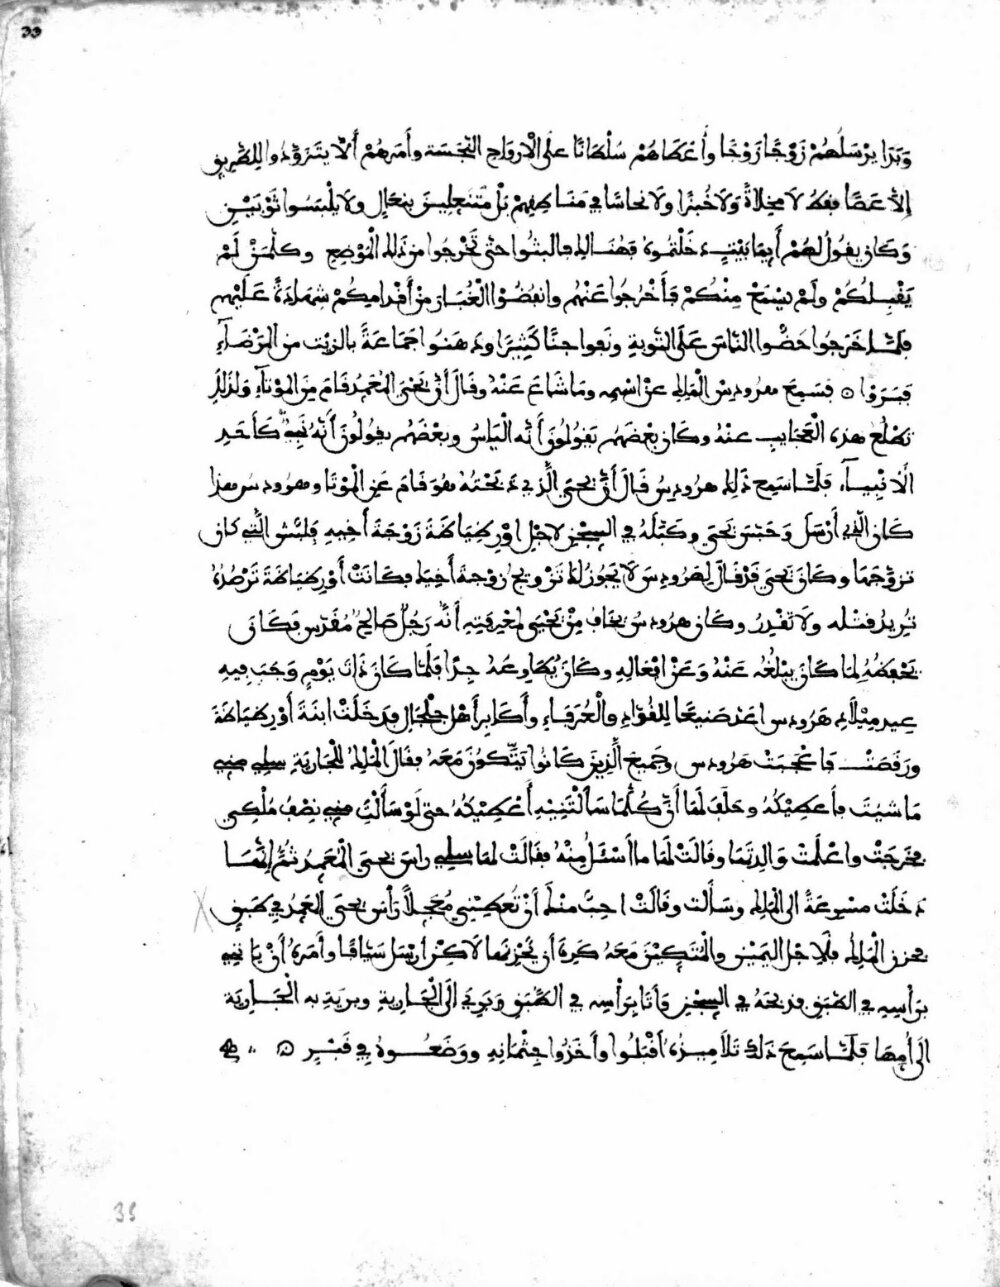 وَبَدَا يرْسَلُهُمْ زَوْجًا زَوْجًا وأَعْطَاهُمْ سُلْطَانًا على الْارواحِ النَّجِسَة وأَمَرهُمْ أَلَّا يَتَزَوَّدُوا للطَّرِيقِ
اِلَّا عَصًا فقط لا مخلاةً وَلَا خُبْزًا ولَا نحاسًا في مَنَاطِقِهِمْ بَلْ مُتَنَعِلِينَ بِنِعَالٍ ولا يلْبَسُوا ثَوْبَيْنِ
وَكَانَ يقولُ لهُمْ أَيمَا بَيْتٍ دَخَلْتُمُوهُ فهُنَالك فالبثُوا حتّى تَخْرجُوا من ذلك الْمَوْضِعِ وكلمَنْ لَمْ
يَقْبِلكُمْ ولَمْ يسْمَعْ مِنْكُمْ فَأَخْرُجُوا عَنْهُم وانْفُضُوا الْغُبَارَ مِنْ أَقْدَامِكُمْ شِهَادَةً عَلَيْهِم
فلمّا خَرَجُوا حَضُّوا النّاس عَلَى التَّوبةِ ونَفوا جنًّا كَثِيرًا ودهَنُوا جَمَاعَةً بالزيْت من الْمَرْضَآءِ
فبَرَوْا ۞ فسَمِعَ هرودس الْمَلِك عن اسْمِهِ وما شَاعَ عَنْهُ وقَالَ أنَّ يَحْيَى الْمعَمِد قَامَ مِنَ الْمَوْتَآءِ ولذلكَ
تطْلعُ هذه الْعجَايب عنهُ وكان بعْضهُم يَقولونَ أَنَّه الْيَاسُ وبعْضُهُم يقولُونَ أَنَّهُ نَبِيٌّ كَأَحَدِ
الْانْبيآء فلمّا سَمِعَ ذَلِك هرُودِسُ قالَ أَنَّ يحيى الّذِي ذبَحْتُهُ هوَ قَامَ عَنِ الْمَوْتا وهرُودسُ هذا
كَانَ الّذِي أَرْسَلَ وَحَبَسَ يحيى وكَبَّلَهُ في السِّجْنِ لاجْلِ اوْرِطِيَاطَةَ زَوْجَةَ أَخِيهِ فِلِبُّش الَّتِي كانَ
تزوَّجَهَا وكَانَ يَحْيَى قدْ قَالَ لِهرُودِسَ لَا يَجُوزُ لكَ تَزْويجُ زوْجة أخيكَ فكَانَتْ أَوْرِطِيَاطَة تَرْصُدُهُ
تُرِيدُ قتْله ولَا تَقْدِرُ وكَانَ هرودسُ يخَافُ مِنْ يَحْيَى لمَعْرِفَتِهِ أَنَّه رَجُلٌ صَالِحٌ مُقَدَّس فكَانَ
يَحْفَظُهُ لِمَا كَانَ يبْلُغُه عَنْهُ وَعَنْ افْعَالِهِ وكَانَ يُطَاوِعُهُ جِدًّا فلَمَّا كَانَ ذَاتَ يَوْمٍ وَجَبَ فِيهِ
عِيدِ مِيْلَادِ هَرُودِسَ اعَدَّ صَنيعًا للقُوَّادِ والْعُرَفَاءِ وأَكَابِرِ أَهْلِ جِلْجَال فدَخَلَتْ ابنَة أَوْرِطِيَاطَةَ
ورَقَصَتْ فَاعْجَبَتْ هَرُودس وجَمِيعَ الَّذِينَ كَانُوا يَتَّكونَ مَعَهُ فقَالَ الْمَلِكُ للْجَارِيَةِ سلِي مِنِي
مَا شيْتَ فأعطِيْكُهُ وحَلَفَ لهَا أَنَّ كُلَّمَا سَأَلْتَنِيهِ أُعْطِيْكُهُ حتى لوْ سَأَلْتِ مِنِي نِصْفَ مُلْكِي
فخَرَجَتْ واعْلَمَتْ وَالِدَتَهَا وقَالَتْ لَهَا مَا أَسْئَلُ مِنْهُ فقَالَتْ لهَا سلِي رأسَ يحيى الْمعَمِد ثُمَّ إنّهَا
دَخَلَتْ مسْرِعَةً الى الْملِكِ وسَأَلت وقَالَتْ احِبُّ مِنْكَ أَنْ تُعْطِيْنِي مُعَجِّلًا رَأْسَ يحيى الْعمدِ في طبَقٍ
فحزن الْمَلِكُ فلِاجْلِ اليَمْينِ والْمتَّكِيْنَ مَعَهُ كَرِهَ أَن يُحْزِنَها لَاكِنْ ارْسَلَ سَيَّافًا وأَمَرَهُ أَنْ يَاتِي
برَأْسِهِ في الطَّبَقِ فذَبحَهُ في السِّجْنِ وَأَتَا بِرَأْسِه في الطَّبَقِ وَبَرِيَ الَى الْجَارِيةِ وبريَة به الْجَارِيَة
الَى أُمِهَا فلمّا سَمِعَ ذَلك تَلَامِيذُهُ أَقْبَلُوا وأَخَذُوا جِثْمَانِهِ ووَضَعُوهُ في قَبْرٍ ۞
39